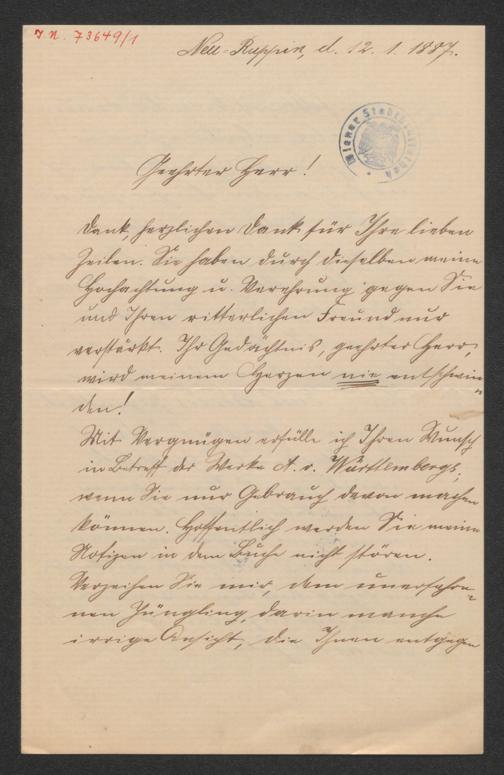 J. N. 73649/1
Neu-Ruppin, d. 12. 1. 1887.
Wiener Stadtbibliothek
Geehrter Herr!
Dank, herzlichen Dank für Ihre lieben
Zeilen. Sie haben durch dieselben meine
Hochachtung u. Verehrung gegen Sie
und Ihren ritterlichen Freund nur
verstärkt. Ihr Gedächtnis, geehrter Herr,
wird meinem Herzen nie entschwin-
den!
Mit Vergnügen erfülle ich Ihren Wunsch
in Betreff der Werke A. v. Württembergs,
wenn Sie nur Gebrauch davon machen
können. Hoffentlich werden Sie meine
Notizen in dem Buche nicht stören.
Verzeihen Sie mir, dem unerfahre-
nen Jüngling, darin manche
irrige Ansicht, die Ihnen entgegen